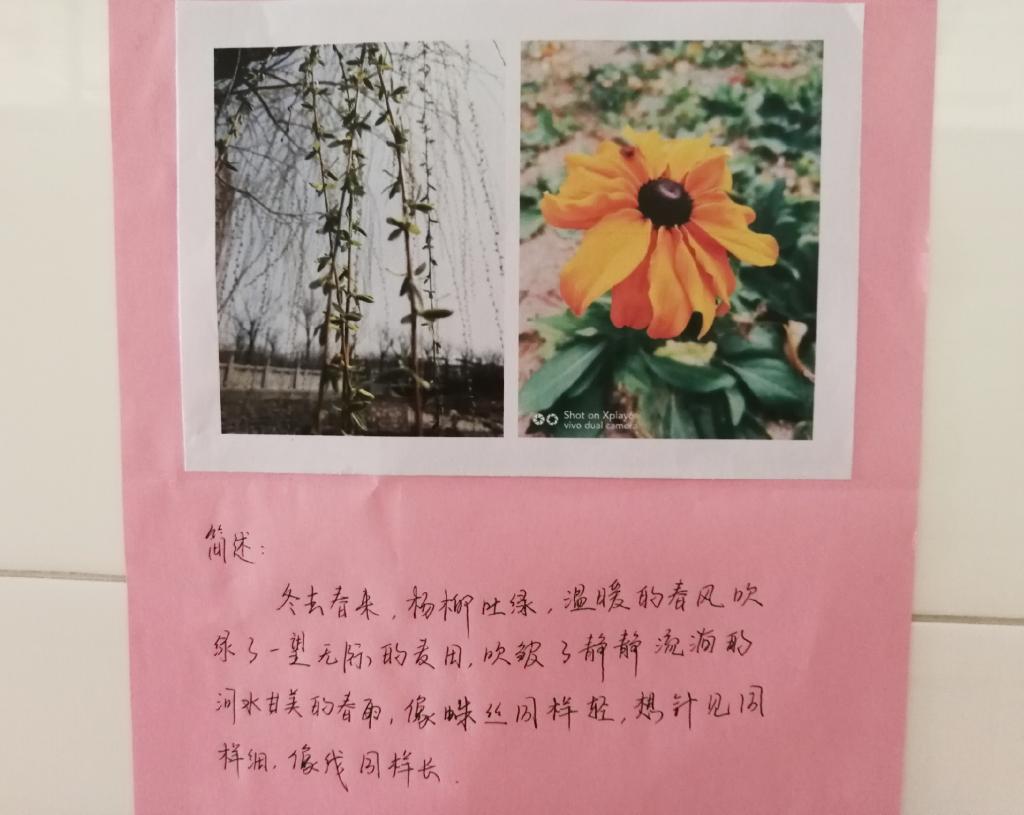 Shot on Xplay6
vivo dual camera
简述：
冬去春来，杨柳吐绿，温暖的春风吹
绿了一望无际的麦田，吹皱了静静流淌的
河水甘美的春雨，像蛛丝同样轻，想针见同
样细，像线同样长．